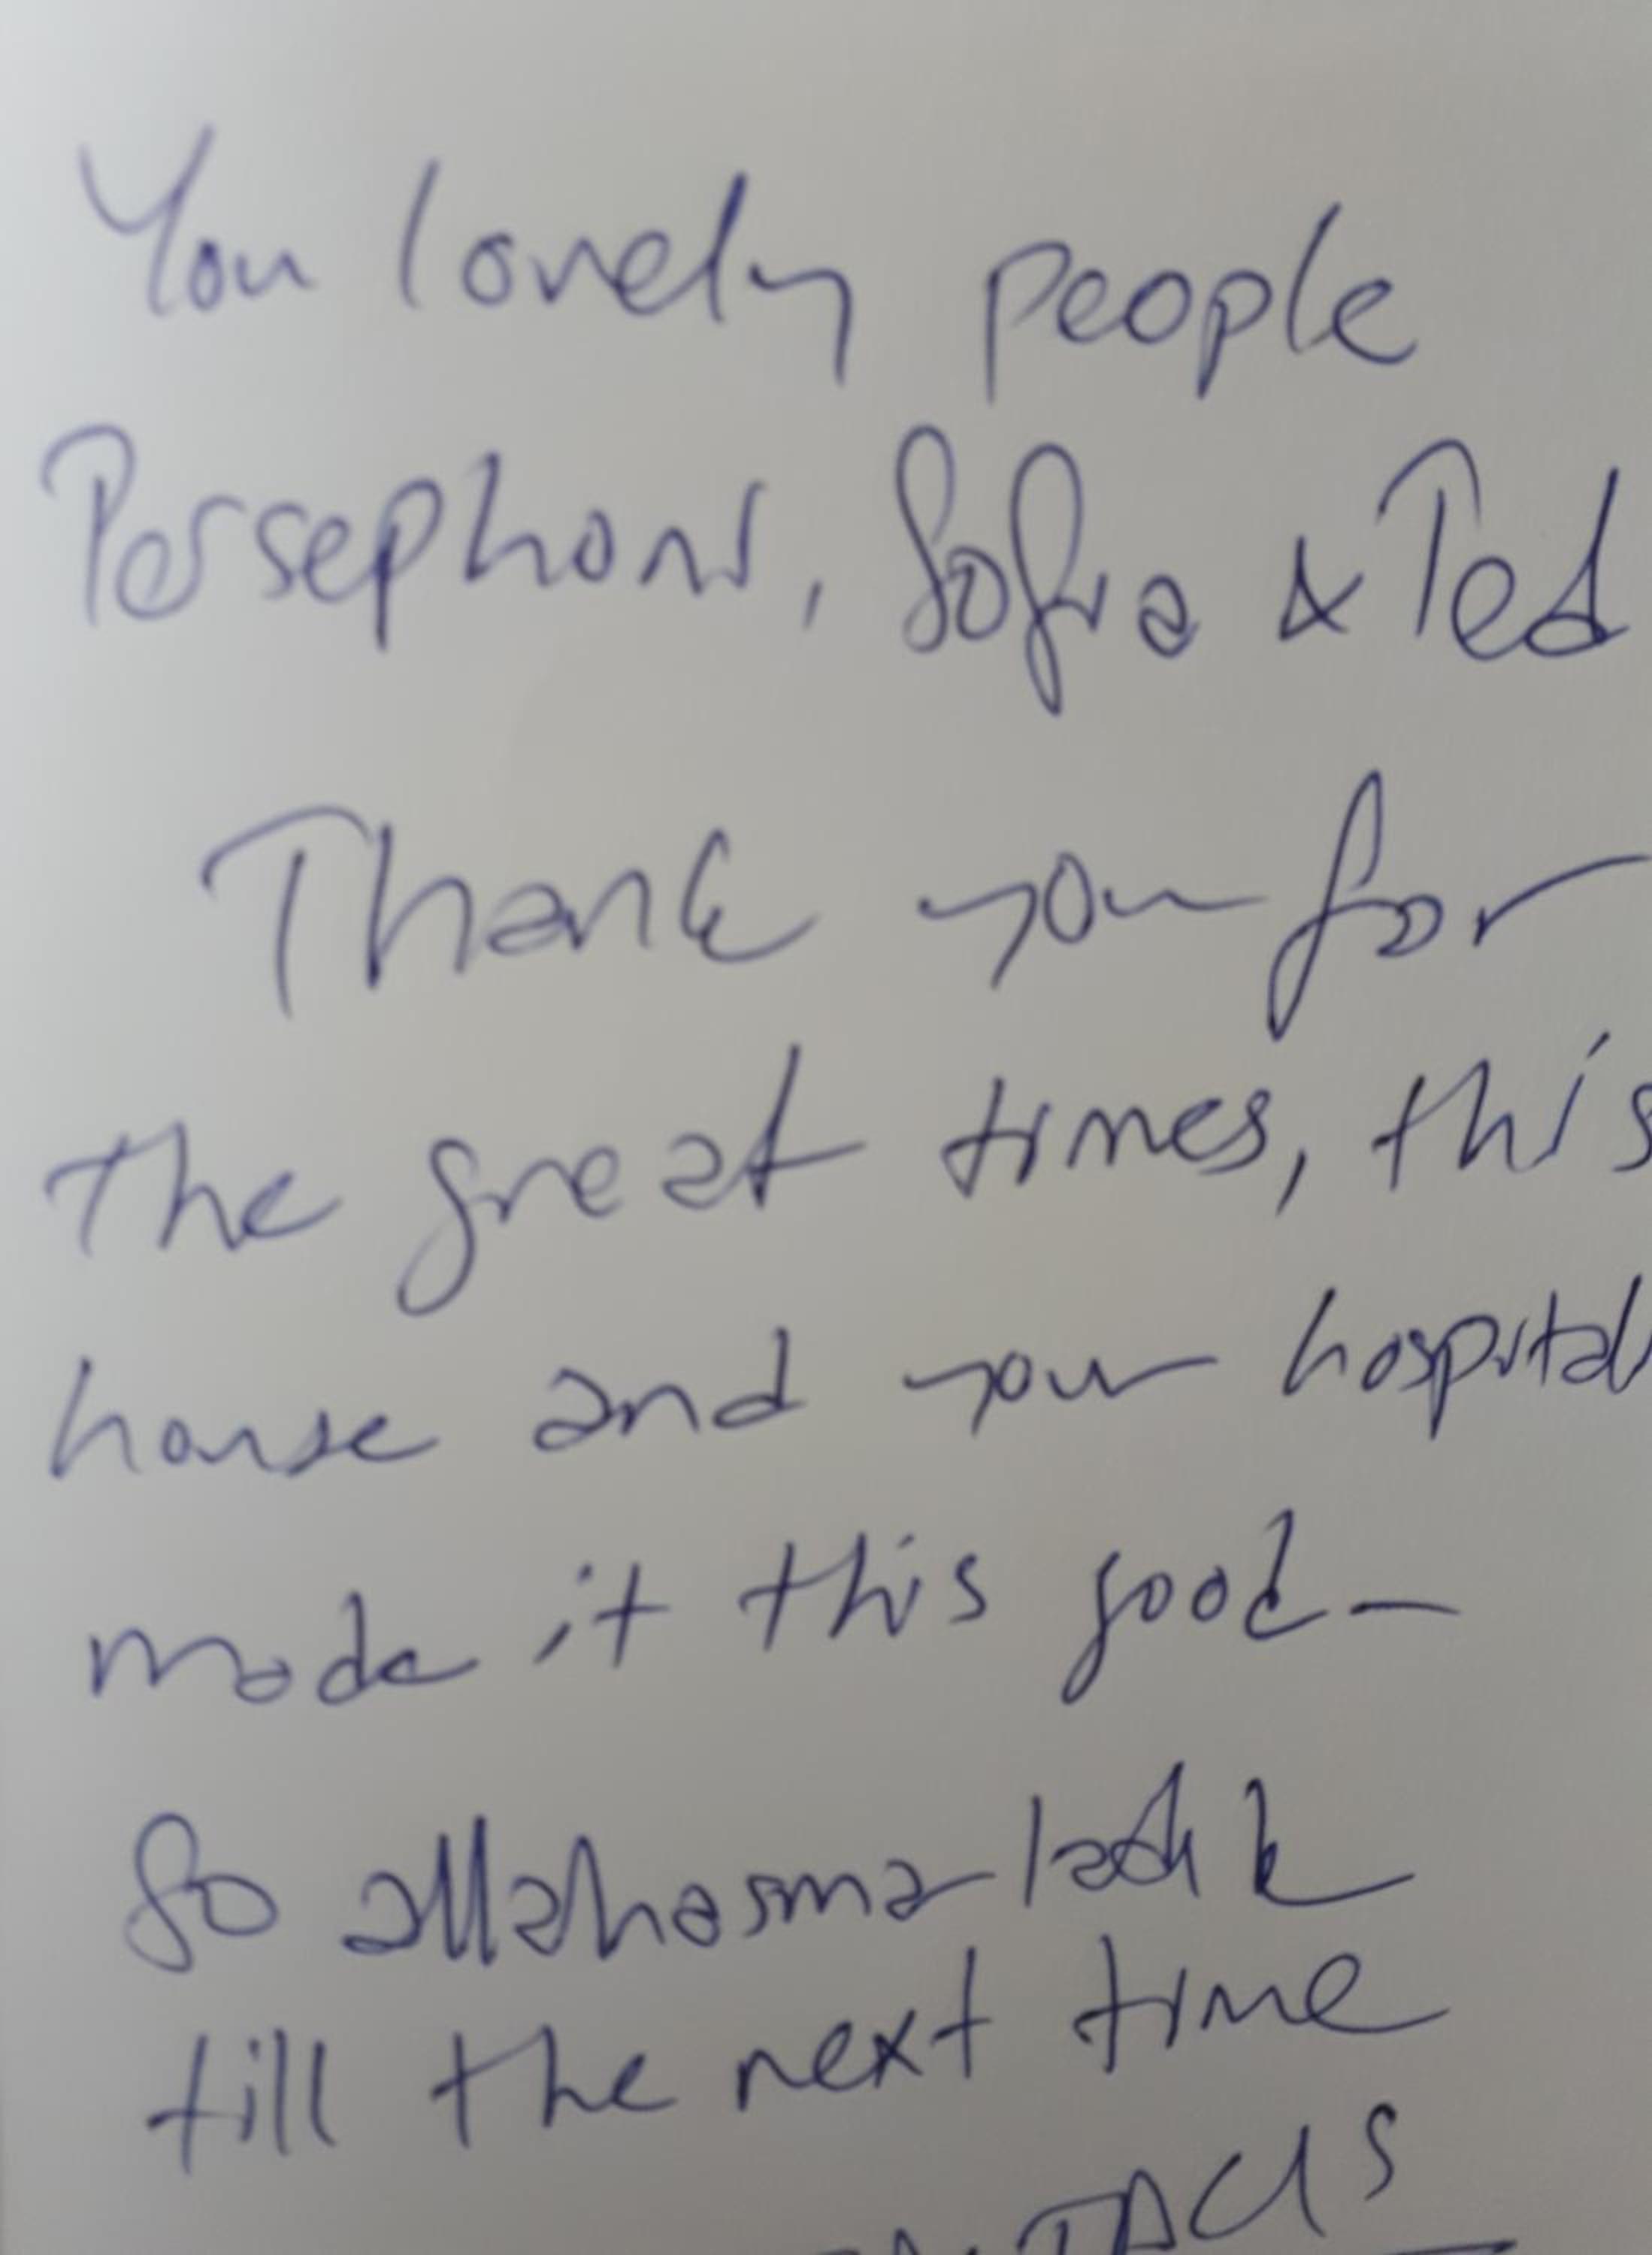 You lovely people
Persephone, Sofia & Ted
Thank you for
the great times, this
house and your
made it this good—
So allahasmarladık
till the next time